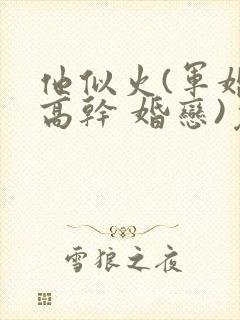 他似火(軍婚
高幹 婚戀)
雪狼之夜